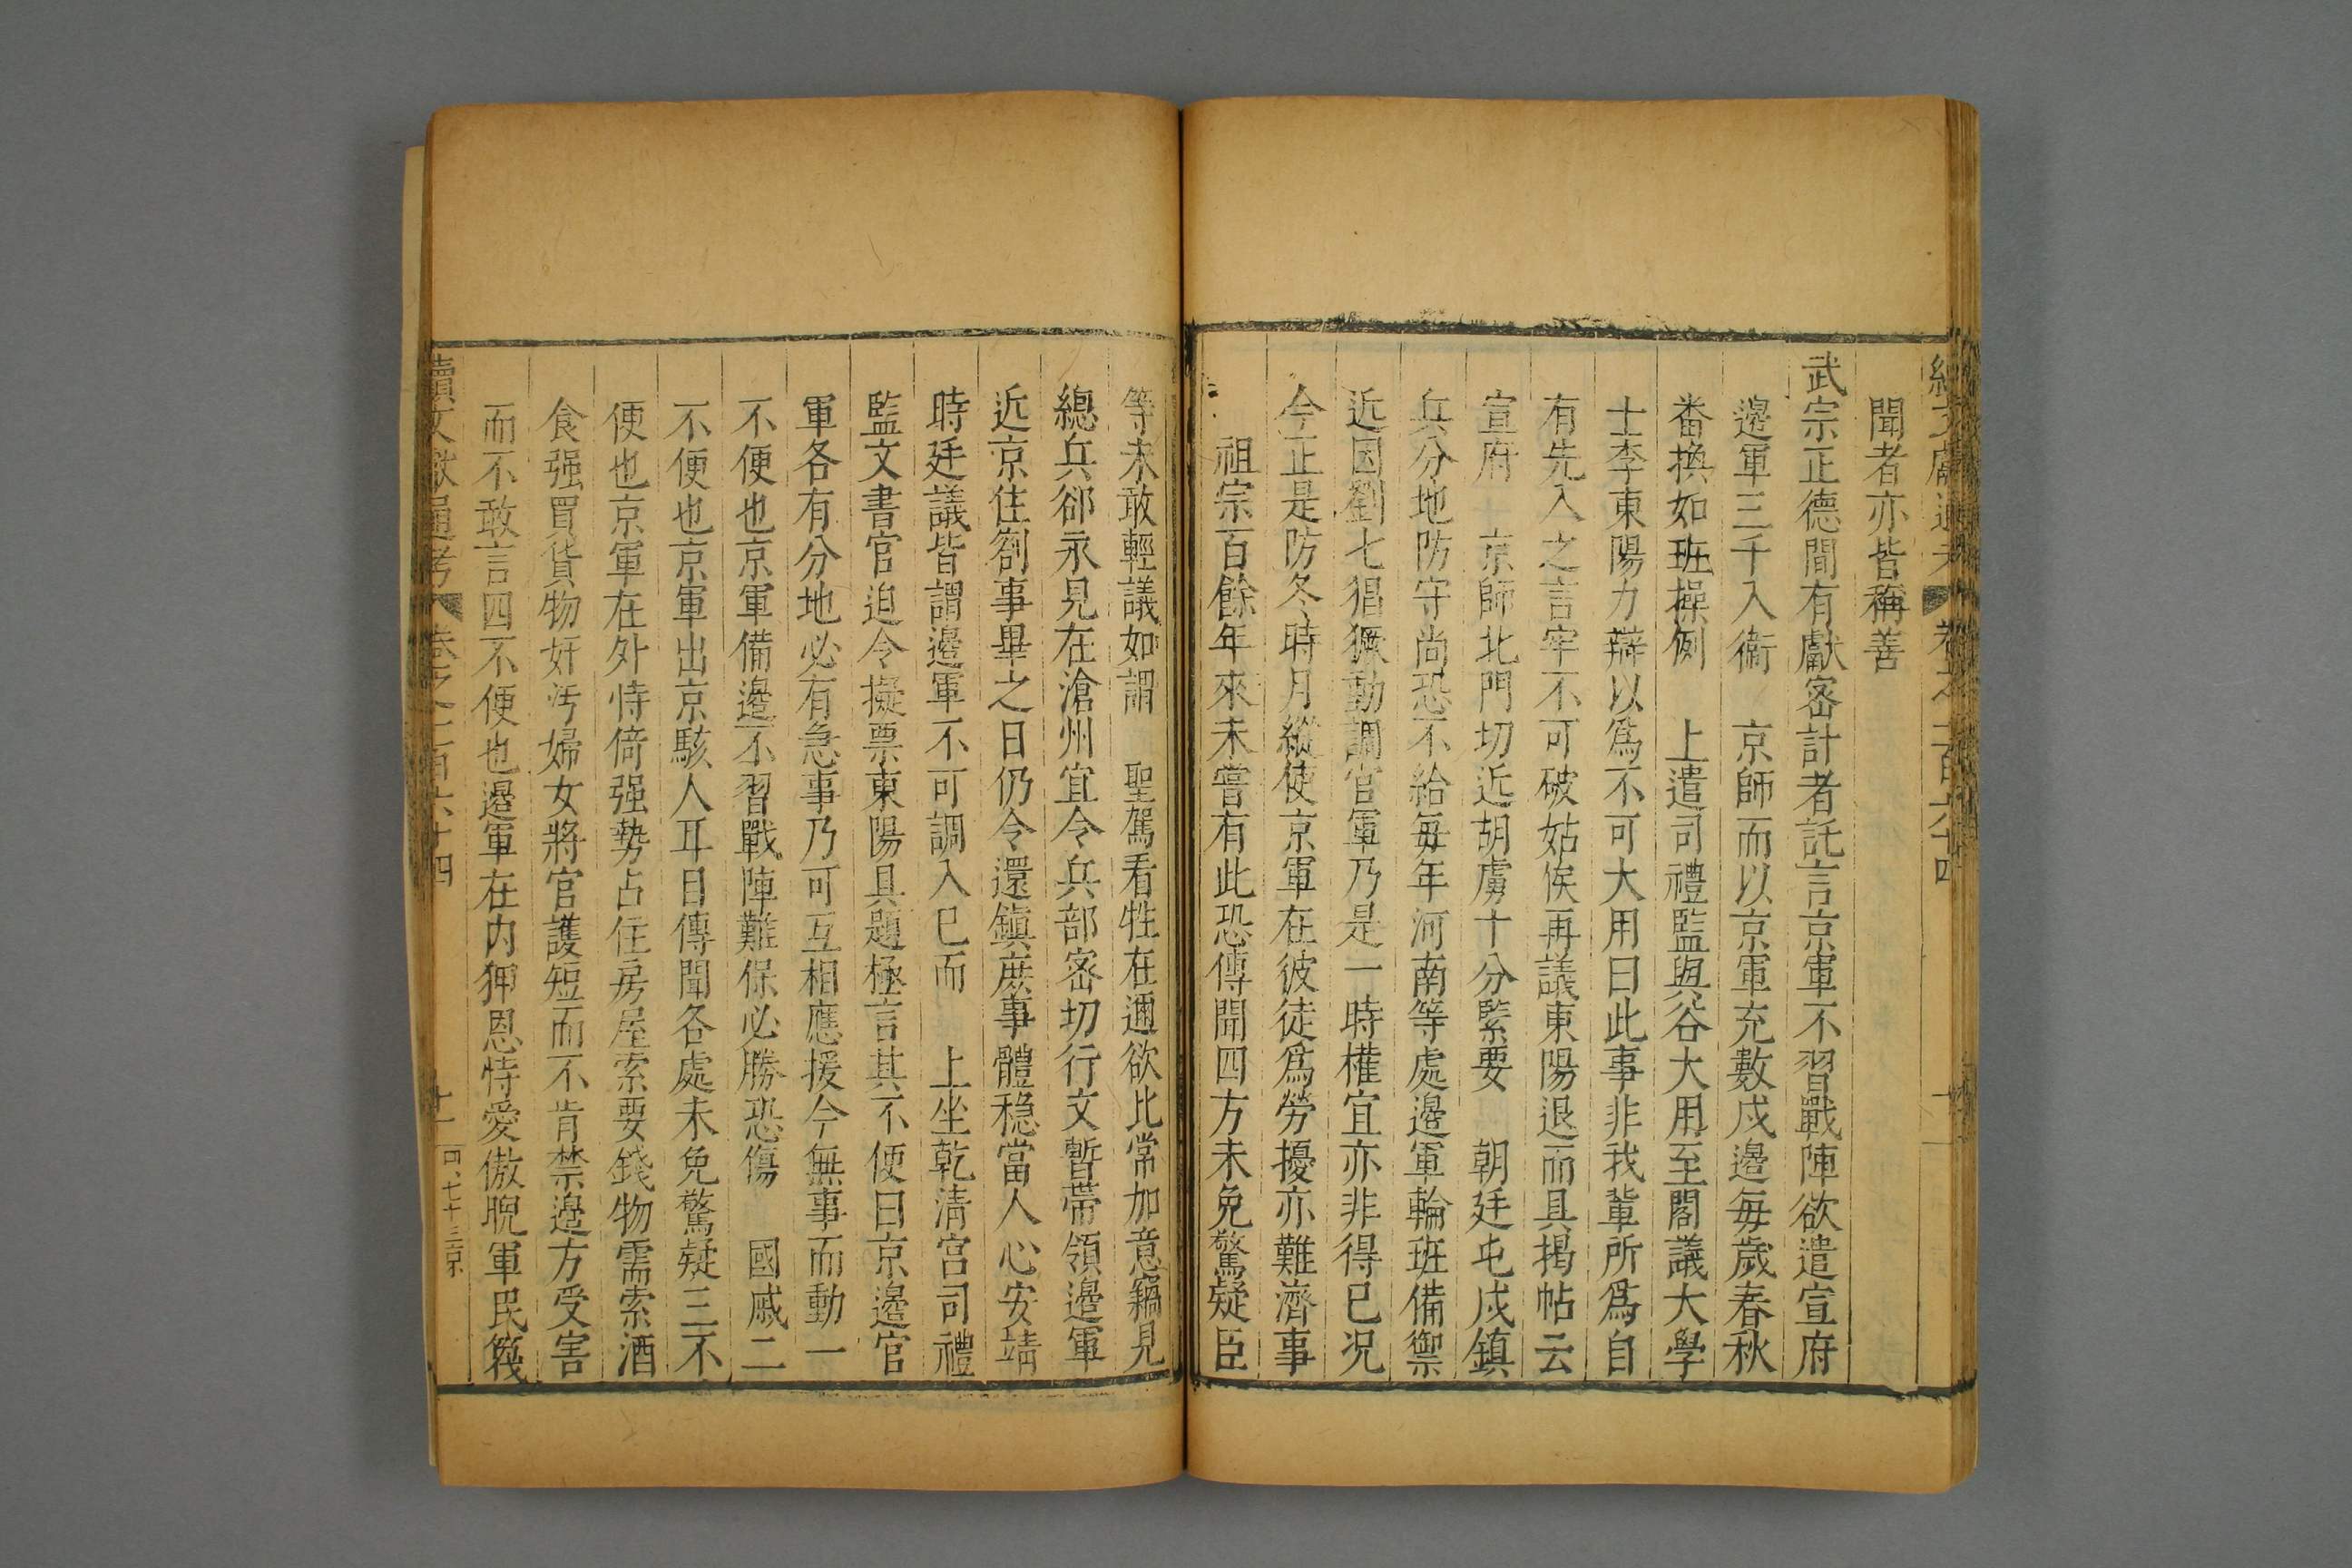 聞者亦皆稱善
武宗正德間有獻密計者託言京軍不習戰陣欲遣宣府
邊軍三千入衛 京師而以京軍充數戍邊每歲春秋
番換如班操例 上遣司禮監與谷大用至閣議大學
士李東陽力辯以爲不可大用曰此事非我輩所爲自
有先入之言牢不可破姑俟再議東陽退而具揭帖云
宣府 京師北門切近胡虜十分緊要 朝廷屯戍鎮
兵分地防守尚恐不給每年河南等處邊軍輪班備禦
近因劉七猖獗動調官軍乃是一時權宜亦非得已况
今正是防冬時月縱使京軍在彼徒爲勞擾亦難濟事
祖宗百餘年來未嘗有此恐傳聞四方未免驚疑臣
等未敢輕議如謂 聖駕看牲在邇欲比常加意竊見
總兵郤永見在滄州宜令兵部密切行文暫帶領邊軍
近京住劄事畢之日仍令還鎮庶事體穩當人心安靖
時廷議皆謂邊軍不可調入已而 上坐乾淸宮司禮
監文書官迫令擬票東陽具題極言其不便曰京邊官
軍各有分地必有急事乃可互相應援今無事而動一
不便也京軍備邊不習戰陣難保必勝恐傷 國威二
不便也京軍出京駭人耳目傳聞各處未免驚疑三不
便也京軍在外恃倚强勢占住房屋索要錢物需索酒
食强買貨物奸汚婦女將官護短而不肯禁邊方受害
而不敢言四不便也邊軍在内狎恩恃愛傲睨軍民篾
續文獻通考 卷之一百六十四 十一